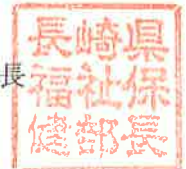 長
長崎県
福祉保
健部長